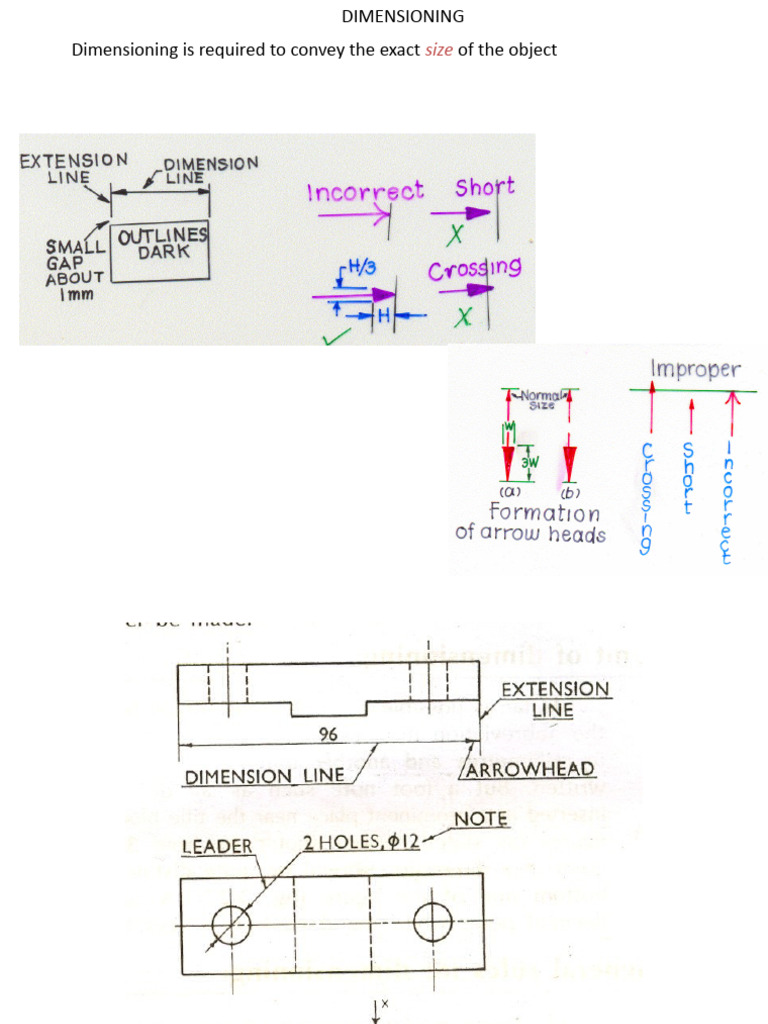 DIMENSIONING
Dimensioning is required to convey the exact size of the object
EXTENSION
LINE
DIMENSION
LINE
SMALL
GAP
ABOUT
1mm
OUTLINES
DARK
Incorrect
Short
X
H/3
H
✓
Crossing
X
Normal
Size
W
3W
(a)
(b)
Formation
of arrow heads
Improper
Crossing
Short
Incorrect
96
EXTENSION
LINE
DIMENSION LINE
ARROWHEAD
LEADER
2 HOLES, ϕ12
NOTE
X